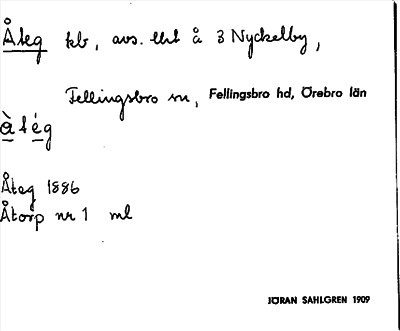 Åteg tkb, avs. tht å 3 Nyckelby,
Fellingsbro sn, Fellingsbro hd, Örebro län
ȧ t ė́ g
Åteg 1886
Åtorp nr 1 ml
JÖRAN SAHLGREN 1909